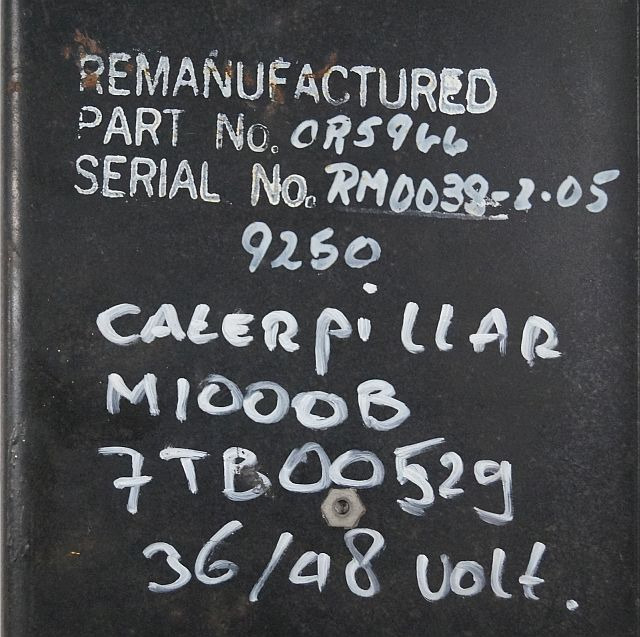 REMANUFACTURED
PART No. OR5966
SERIAL No. RM0038-2.05
9250
CATERpiLLAR
M1000B
7TB00529
36/48 volt.